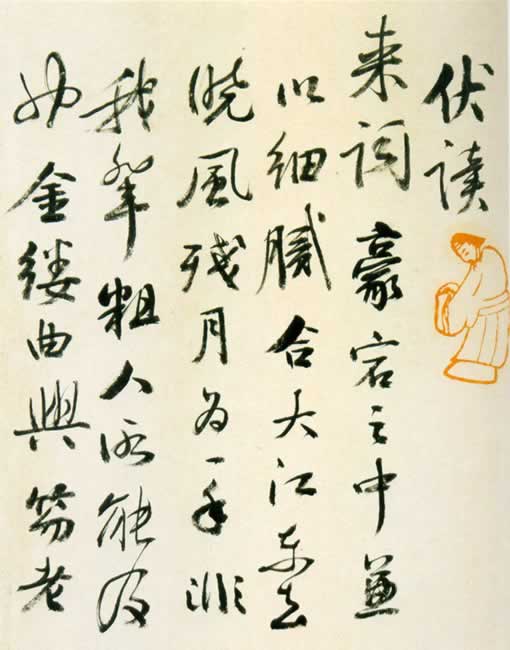 伏读
来词豪宕之中兼
以细腻合大江东去
晓風残月为一手非
我辈粗人所能及
金缕曲與笏老